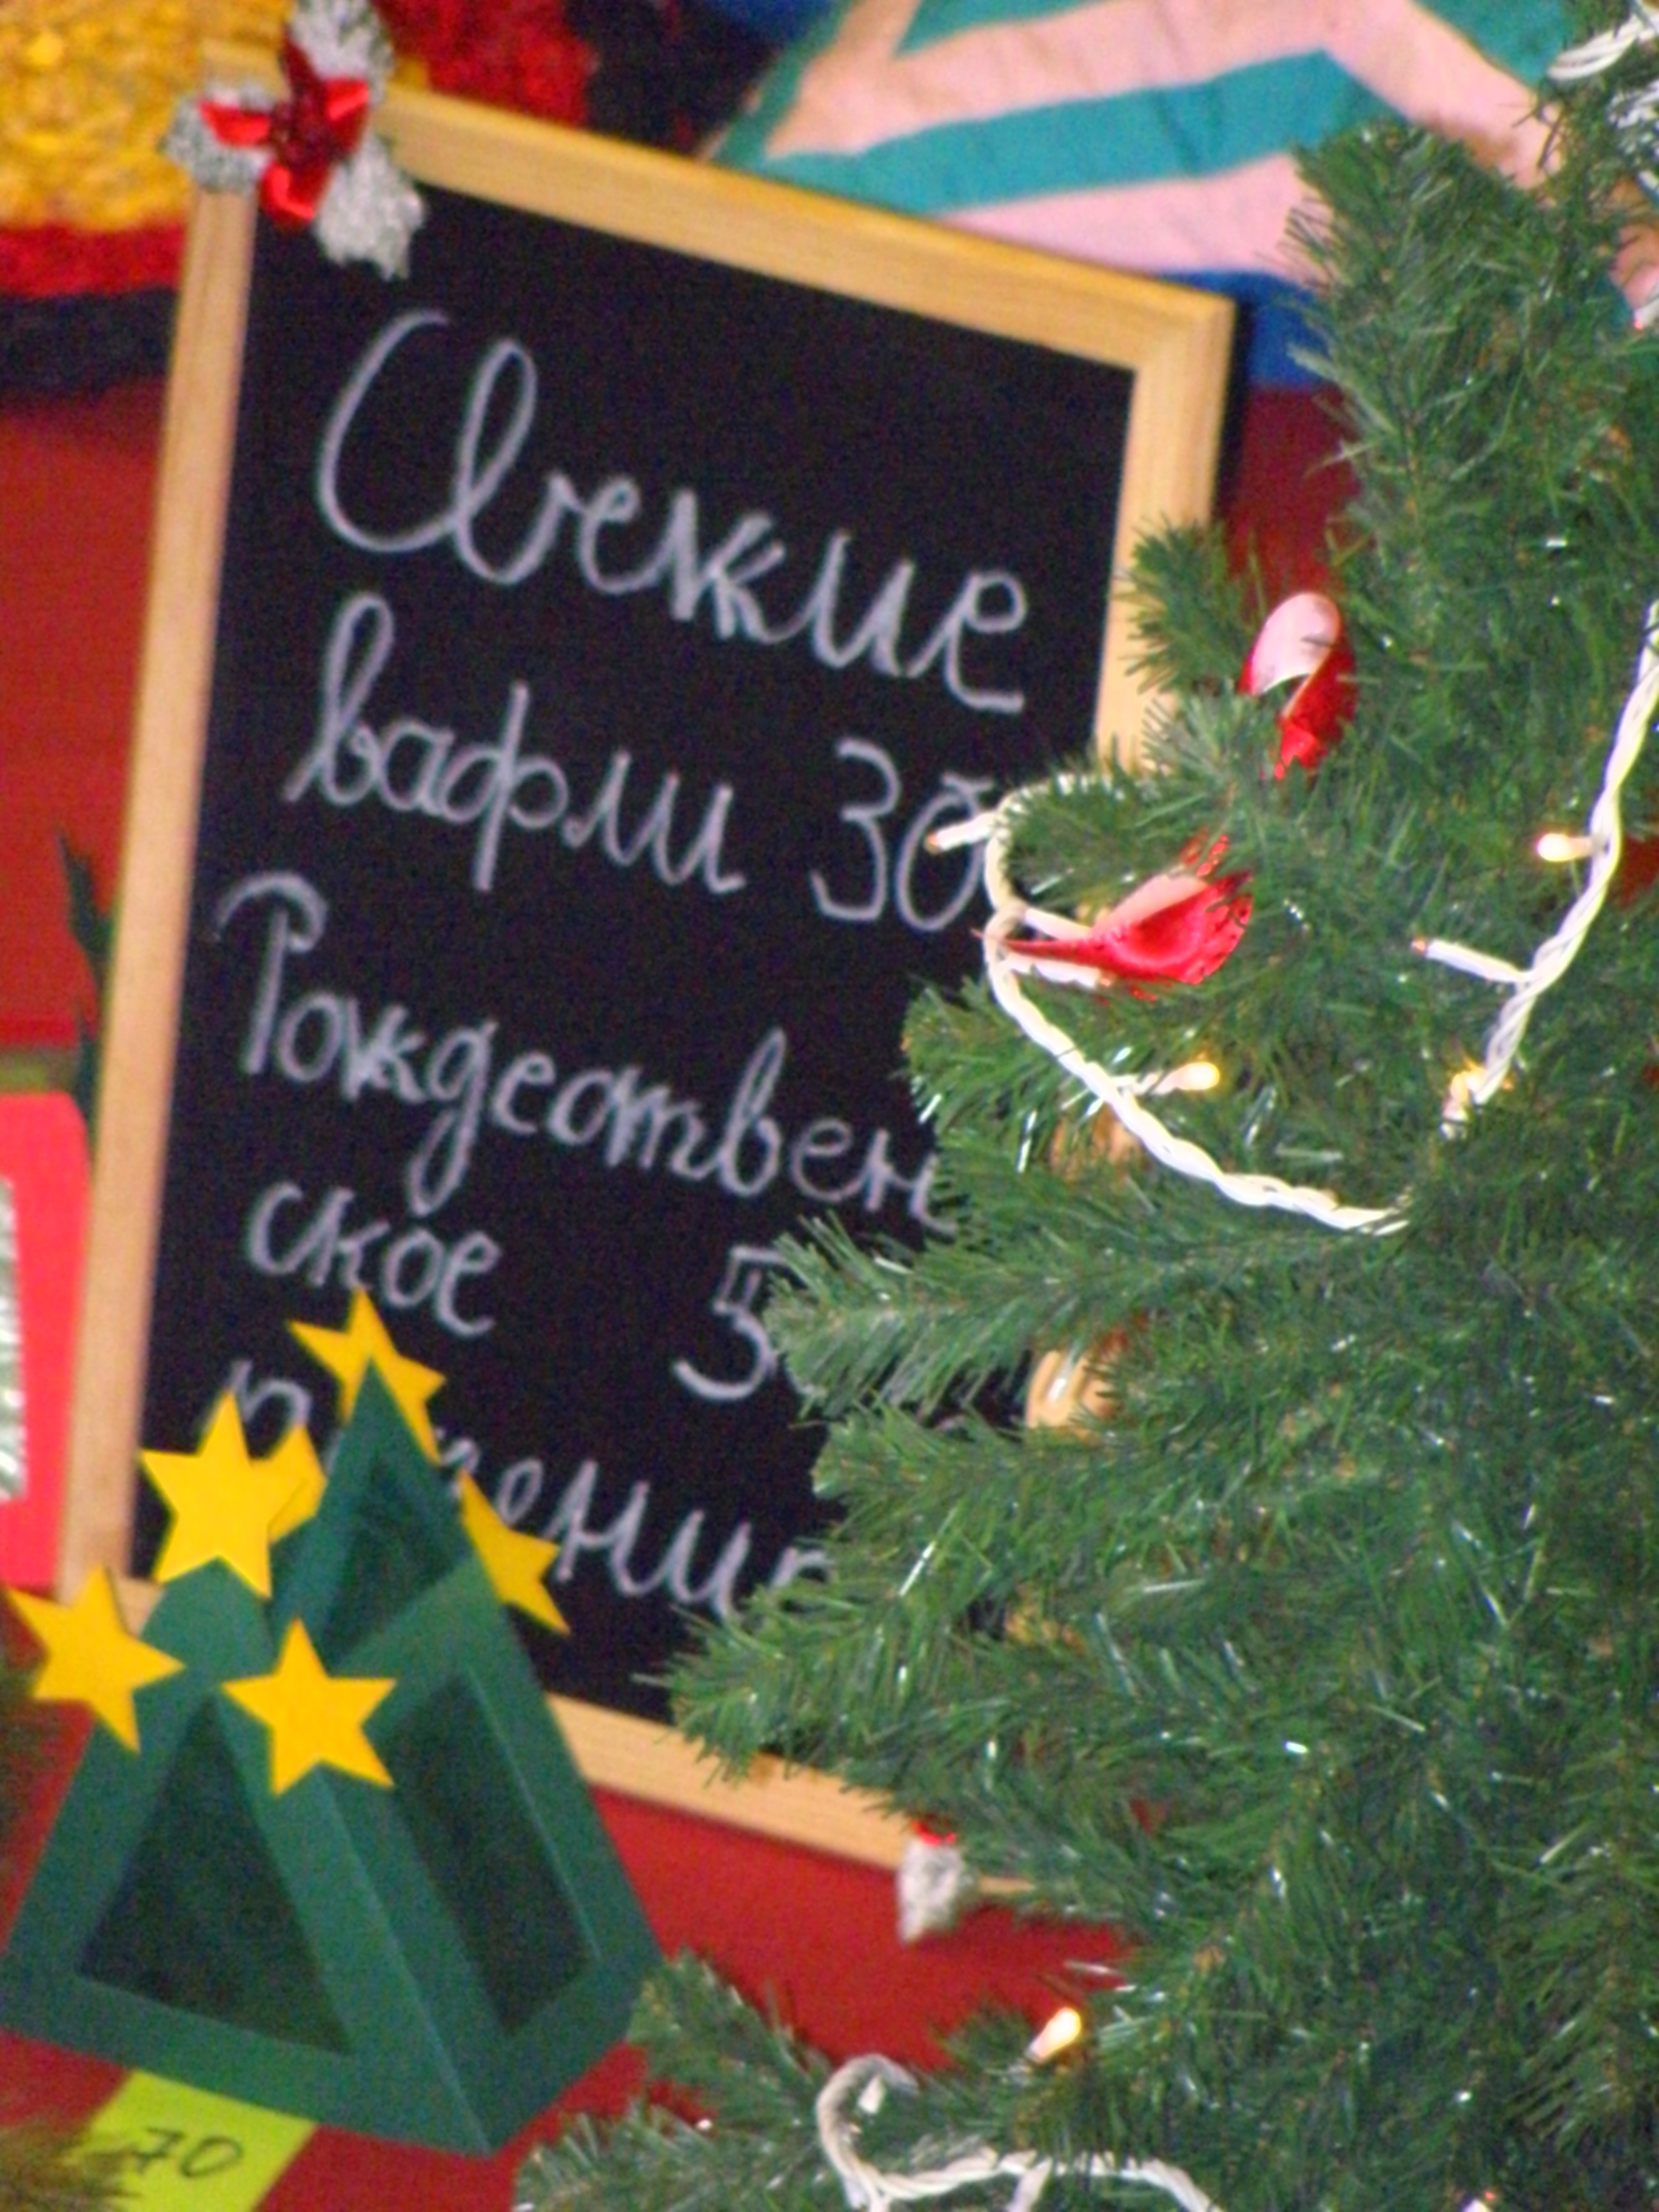 Свежие
вафли 30
Рождествен
ское 5
70